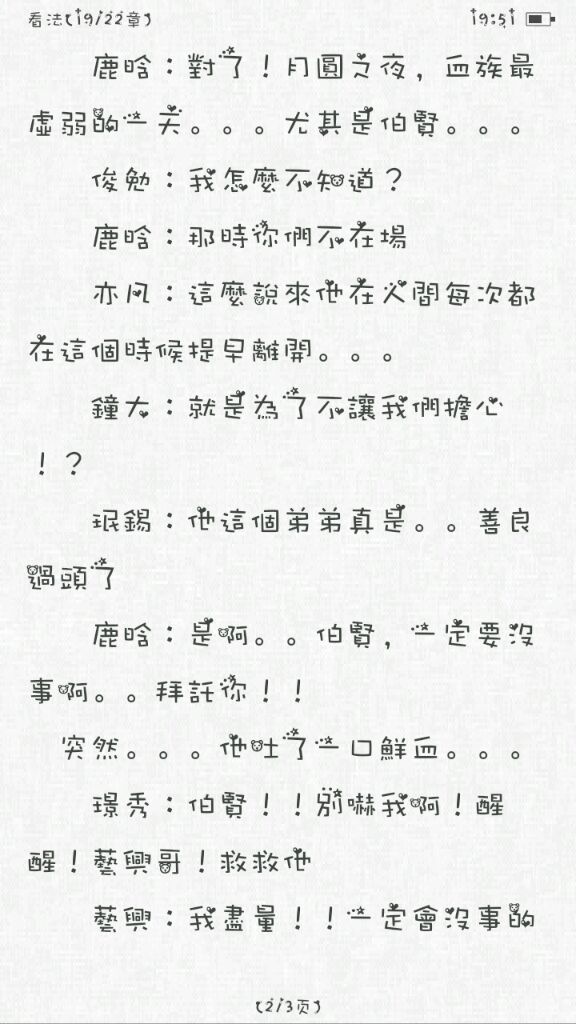 看法(19/22章) 19:51
鹿晗：對了！月圓之夜，血族最
虛弱的一天。。。尤其是伯賢。。。
俊勉：我怎麼不知道？
鹿晗：那時你們不在場
亦凡：這麼說來他在人間每次都
在這個時候提早離開。。。
鐘大：就是為了不讓我們擔心
！？
珉錫：他這個弟弟真是。。善良
過頭了
鹿晗：是啊。。伯賢，一定要沒
事啊。。拜託你！！
突然。。。他吐了一口鮮血。。。
璟秀：伯賢！！別嚇我啊！醒
醒！藝興哥！救救他
藝興：我盡量！！一定會沒事的
(2/3页)